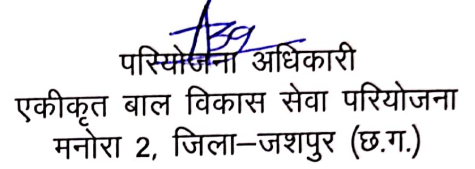 परियोजना अधिकारी
एकीकृत बाल विकास सेवा परियोजना
मनोरा 2, जिला–जशपुर (छ.ग.)